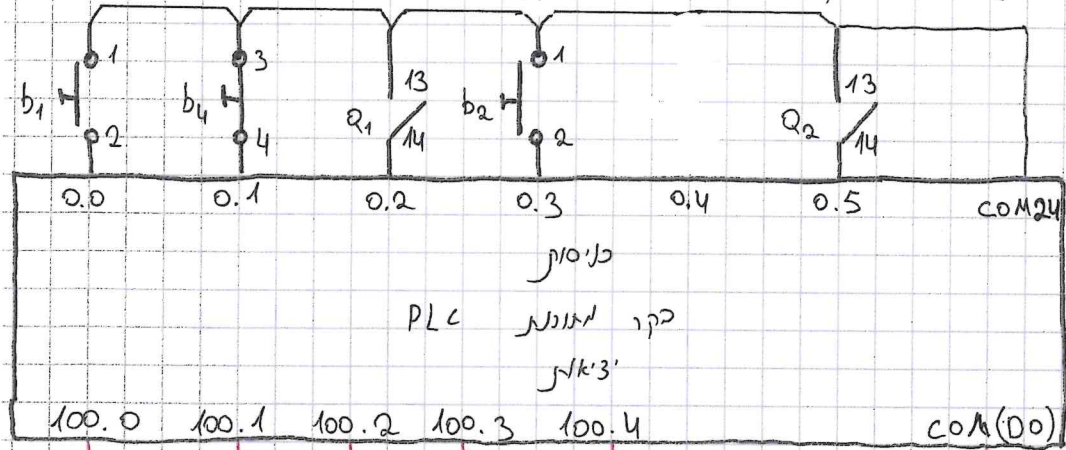 1 3 13 1 13
b1 b4 Q1 b2 Q2
2 4 14 2 14
0.0 0.1 0.2 0.3 0.4 0.5 COM24
כניסות
בקר מתוכנת PLC
יציאות
100.0 100.1 100.2 100.3 100.4 COM(D0)